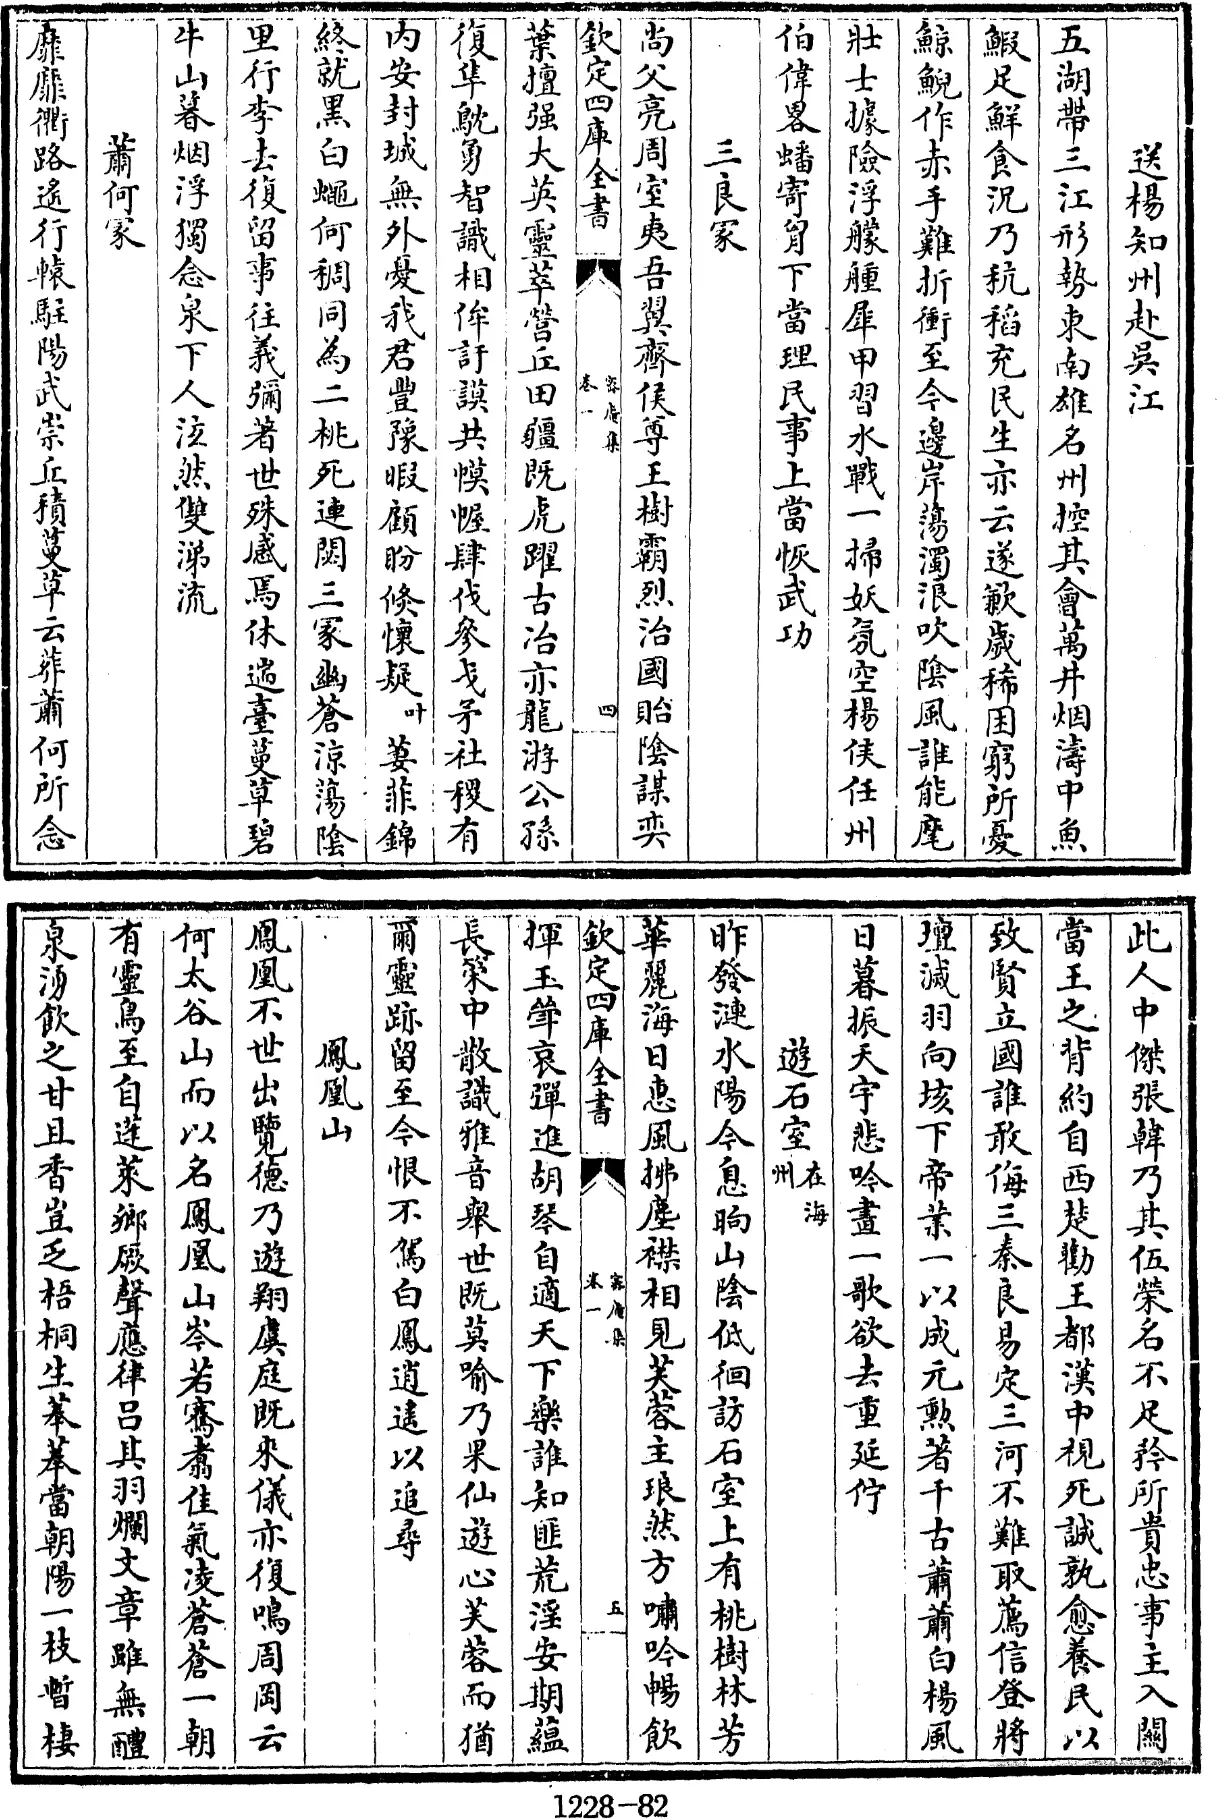 送楊知州赴吳江
五湖帶三江形勢東南雄名州控其會萬井烟濤中魚
鰕足鮮食況乃秔稻充民生亦云遂歉歲稀困窮所憂
鯨鯢作赤手難折衝至今邊岸蕩濁浪吹陰風誰能麾
壯士據險浮艨艟犀甲習水戰一掃妖氛空楊侯任州
伯偉畧蟠寄胷下當理民事上當恢武功
三良冡
尚父亮周室夷吾翼齊侯尊王樹霸烈治國貽陰謀奕
欽定四庫全書
容菴集
卷一
四
葉擅强大英靈萃營丘田疆既虎躍古冶亦龍游公孫
復隼鷙勇智識相侔訏謨共幙幄肆伐參戈矛社稷有
内安封域無外憂我君豐豫暇顧盼倐懷疑叶萋菲錦
終就黑白蠅何稠同為二桃死連閟三冡幽蒼涼蕩陰
里行李去復留事往義彌著世殊感焉休遄臺蔓草碧
牛山暮烟浮獨念泉下人泣然雙涕流
蕭何冡
靡靡衢路遙行轅駐陽武崇丘積蔓草云葬蕭何所念
此人中傑張韓乃其伍榮名不足矜所貴忠事主入關
當王之背約自西楚勸王都漢中視死誠孰愈養民以
致賢立國誰敢侮三秦良易定三河不難取薦信登將
壇滅羽向垓下帝業一以成元勲著千古蕭蕭白楊風
日暮振天宇悲吟盡一歌欲去重延佇
遊石室在海州
昨發漣水陽今息昫山陰低徊訪石室上有桃樹林芳
華麗海日惠風拂塵襟相見芙蓉主琅然方嘯吟暢飲
欽定四庫全書
容菴集
卷一
五
揮玉斝哀彈進胡琴自適天下樂誰知匪荒淫安期蘊
長策中散識雅音舉世既莫喻乃果仙遊心芙蓉而猶
爾靈跡留至今恨不駕白鳳逍遙以追尋
鳳凰山
鳳凰不世出覽德乃遊翔虞庭既來儀亦復鳴周岡云
何太谷山而以名鳳凰山岺若騫翥佳氣凌蒼蒼一朝
有靈鳥至自蓬萊鄉厥聲應律呂其羽爛文章雖無醴
泉湧飲之甘且香豈乏梧桐生菶菶當朝陽一枝暫棲
1228-82